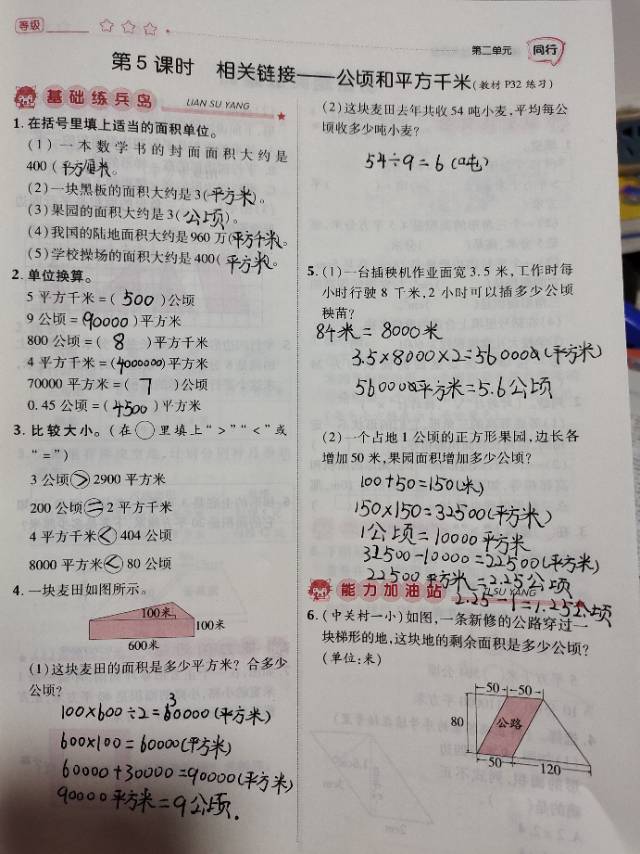 等级
第二单元 同行
第 5 课时 相关链接——公顷和平方千米(教材 P32 练习)
基础练兵岛 LIAN SU YANG
1. 在括号里填上适当的面积单位。
(1) 一本数学书的封面面积大约是
400 (平方厘米)。
(2) 一块黑板的面积大约是 3(平方米)。
(3) 果园的面积大约是 3(公顷)。
(4) 我国的陆地面积大约是 960 万(平方千米)。
(5) 学校操场的面积大约是 400(平方米)。
2. 单位换算。
5 平方千米=(500)公顷
9 公顷=(90000)平方米
800 公顷=(8)平方千米
4 平方千米=(4000000)平方米
70000 平方米=(7)公顷
0.45 公顷=(4500)平方米
3. 比较大小。(在○里填上“>”“<”或
“=”)
3 公顷>2900 平方米
200 公顷=2 平方千米
4 平方千米<404 公顷
8000 平方米<80 公顷
4. 一块麦田如图所示。
100米
100米
600米
(1) 这块麦田的面积是多少平方米? 合多少
公顷?
100×600÷2=30000(平方米)
600×100=60000(平方米)
60000+30000=90000(平方米)
90000平方米=9公顷.
(2) 这块麦田去年共收 54 吨小麦,平均每公
顷收多少吨小麦?
54÷9=6(吨)
5. (1) 一台插秧机作业面宽 3.5 米,工作时每
小时行驶 8 千米,2 小时可以插多少公顷
秧苗?
8千米=8000米
3.5×8000×2=56000(平方米)
56000平方米=5.6公顷
(2) 一个占地 1 公顷的正方形果园,边长各
增加 50 米,果园面积增加多少公顷?
100+50=150(米)
150×150=32500(平方米)
1公顷=10000平方米
32500-10000=22500(平方米)
22500平方米=2.25公顷
2.25-1=1.25公顷
能力加油站 LISU YANG
6. (中关村一小)如图,一条新修的公路穿过一
块梯形的地,这块地的剩余面积是多少公顷?
(单位:米)
50 50
80
公路
50
120